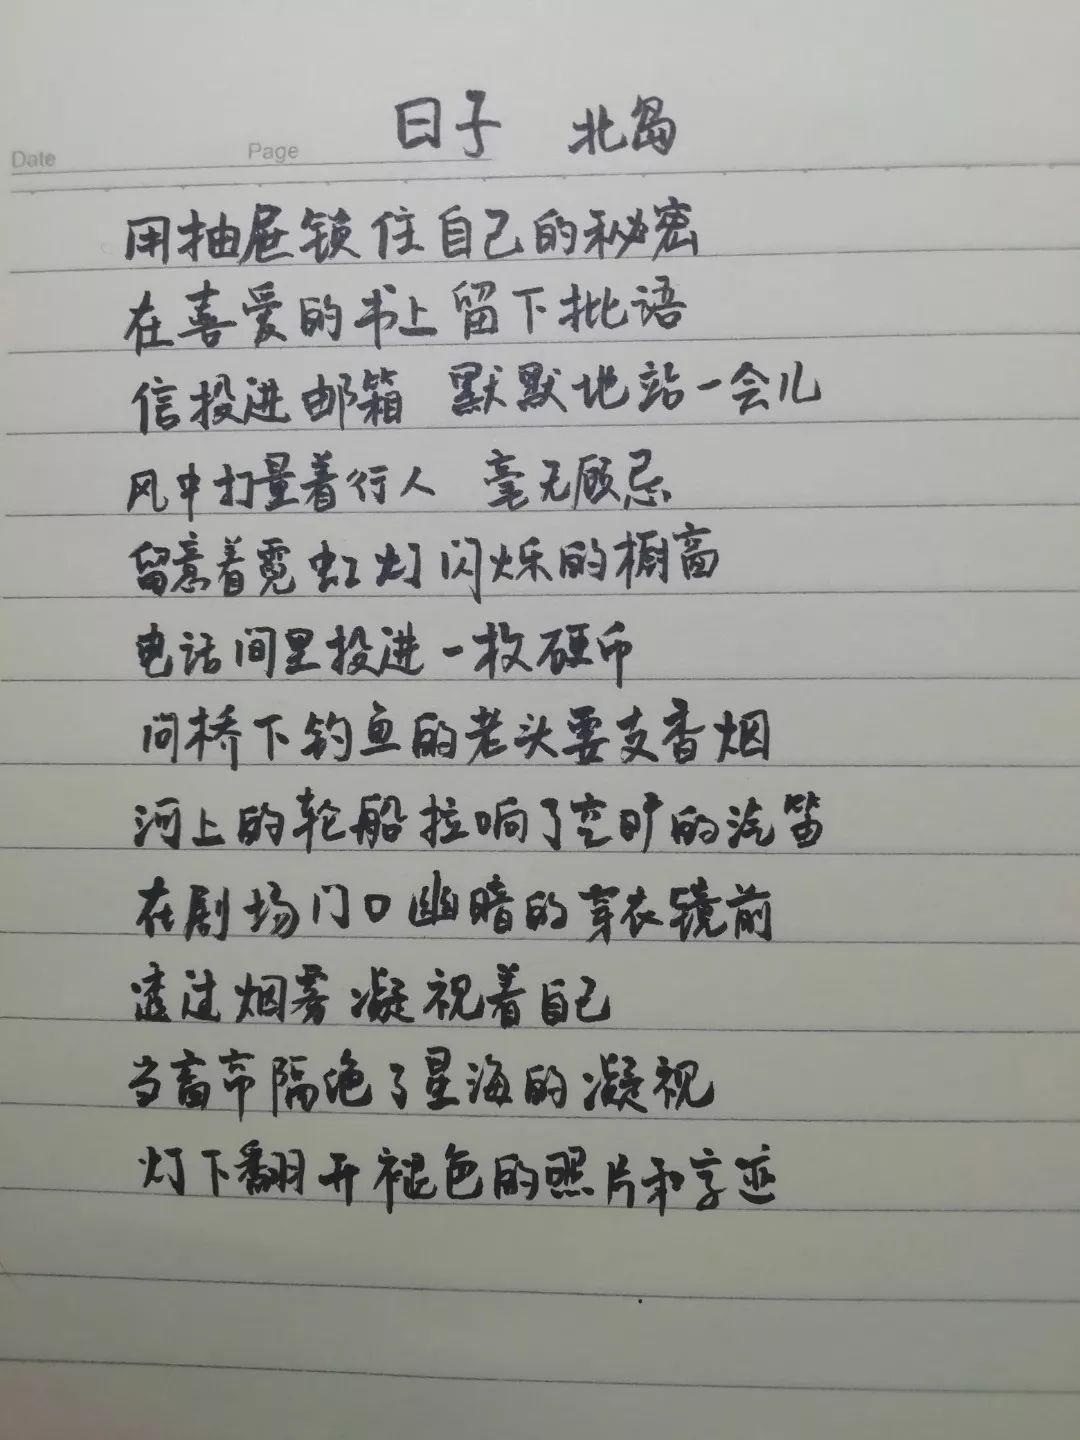 日子 北岛
Date Page
用抽屉锁住自己的秘密
在喜爱的书上留下批语
信投进邮箱 默默地站一会儿
风中打量着行人 毫无顾忌
留意着霓虹灯闪烁的橱窗
电话间里投进一枚硬币
问桥下钓鱼的老头要支香烟
河上的轮船拉响了空旷的汽笛
在剧场门口幽暗的穿衣镜前
透过烟雾凝视着自己
当窗帘隔绝了星海的凝视
灯下翻开褪色的照片和字迹